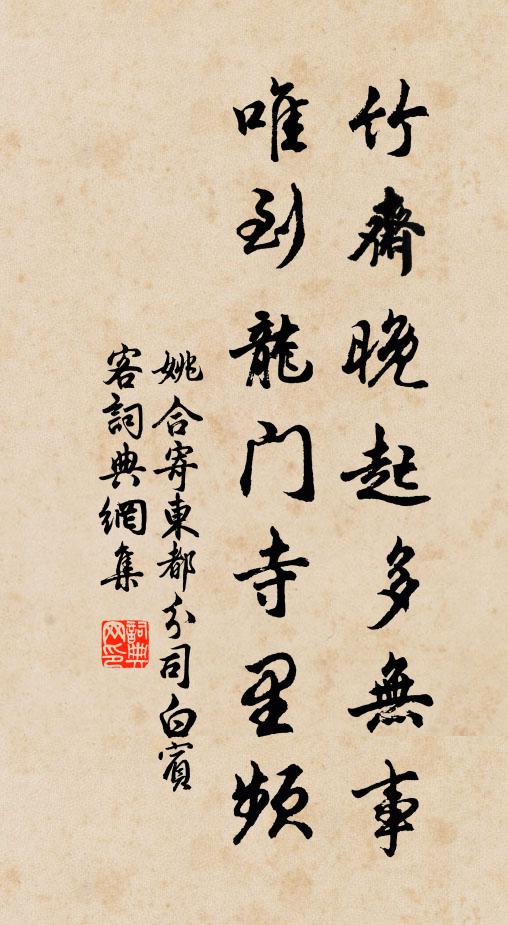 竹齋晚起多無事
唯到龍门寺里頻
姚合寄東都分司白賓
客詞典網集
詞典
网印